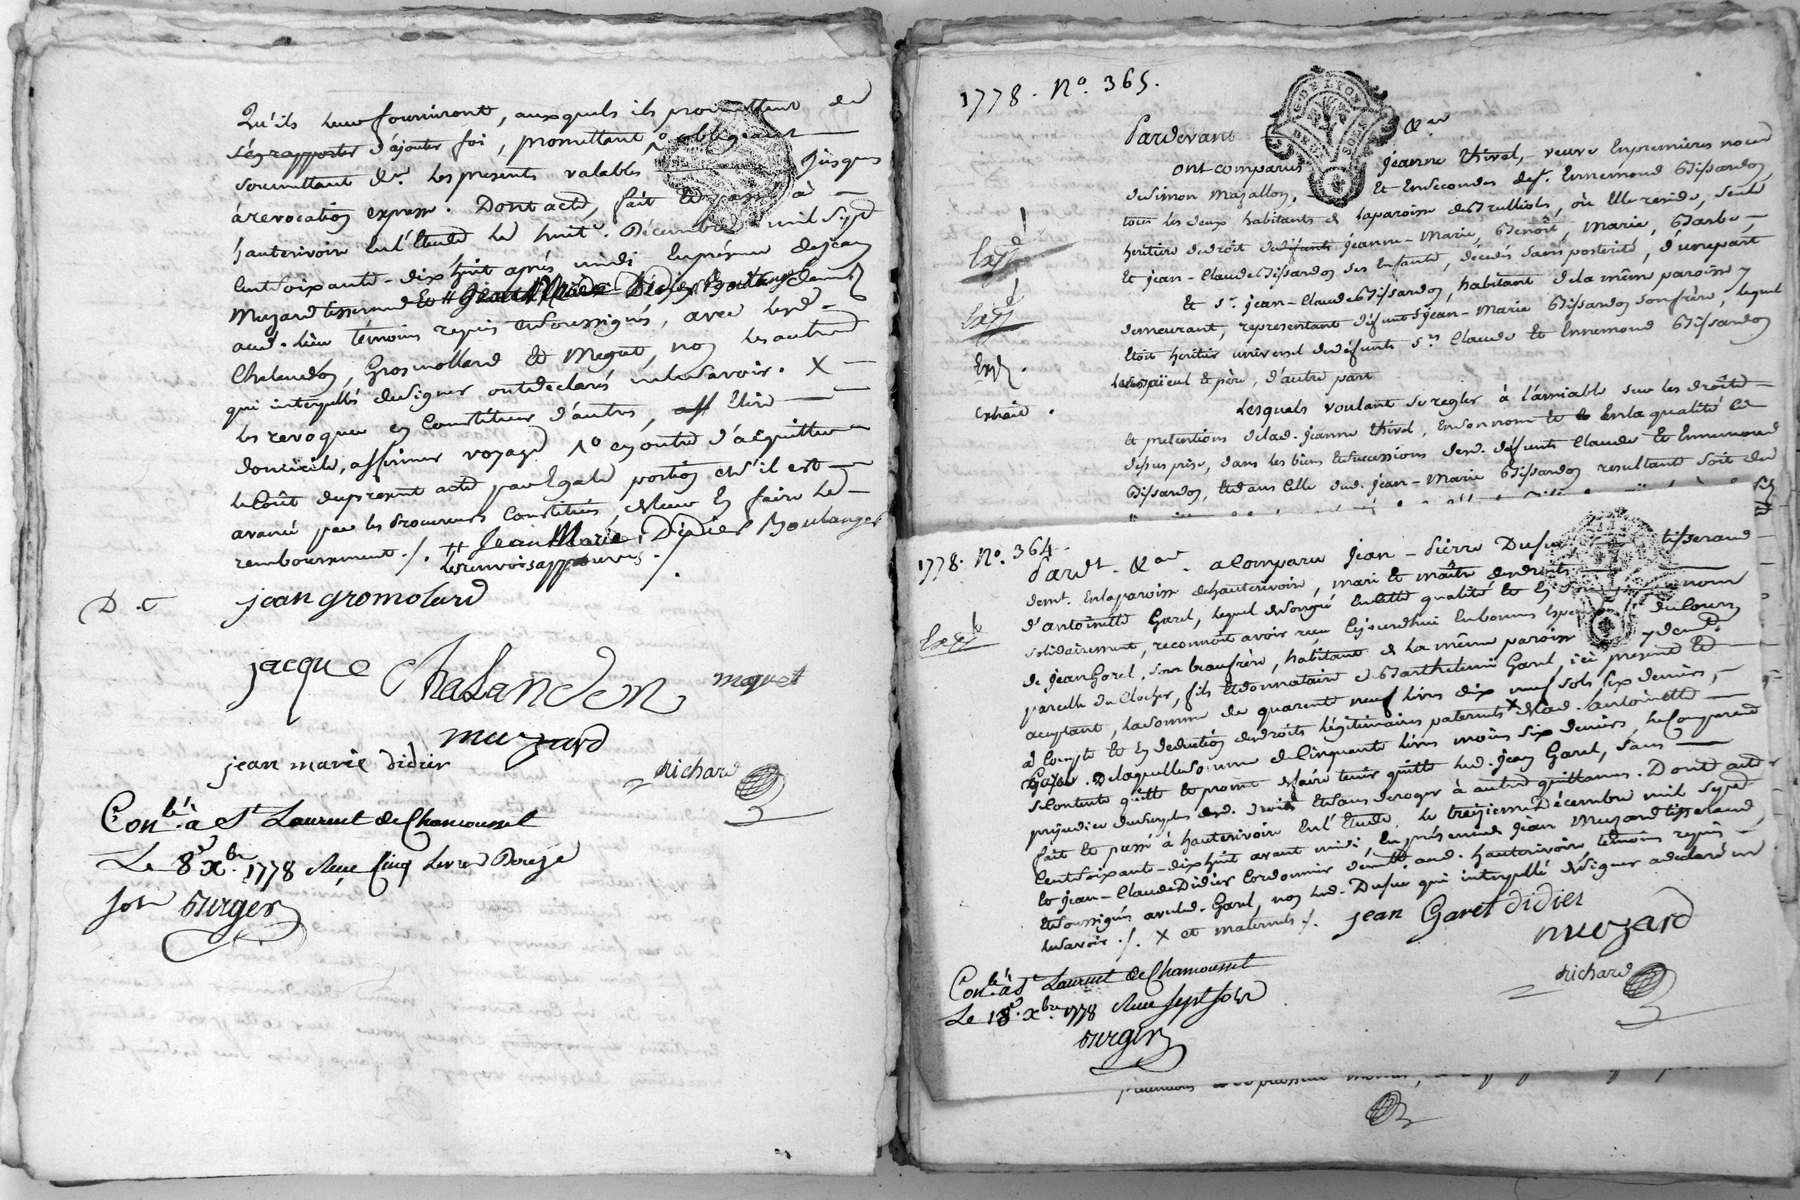 Qu'ils leur fourniront, auxquels ils promettent de
s'en rapporter d'ajouter foi, promettant obligeant
soumettant &a. Les presents valables jusques
à revocation expresse. Dont acte, fait et passé à
hauterivoire en l'Etude le huit Décembre mil sept
cent soixante-dix huit après midi en présence de jean
Muzard tisserand et
aud. lieu témoins requis et soussignés, avec lesd.
Chalandon, Gromollard et Meget, non les autres
qui interpellés de signer ont declaré ne le savoir. X
les revoquer en constituer d'autres, élire
domicile, affirmer voyage en outre d'acquitter
le coût du present acte par egale portion et s'il est
avancé par les Procureurs constitués de leur en faire le
remboursement ./. # Jean Marie Didier Boulanger
les renvois approuvés ./.
D. C
jean gromolard
jacque Chalanden meget
muzard
jean marie didier
Richard
Con.lé à St Laurent de Chamousset
Le 8 Xbre 1778 Reçu Cinq Livres Douze
sols Burger
1778. No. 365.
Pardevant &a
ont comparus Jeanne thivel, veuve en premieres noces
de Simon Mazallon, Et en secondes de S. Ennemond Bissardon
tous les deux habitants de la paroisse de Brulliols, où Elle reside, seule
heritiere de droit de jeanne-Marie, Benoît, Marie, Barbe
et jean-Claude Bissardon ses Enfants, décédés sans posterité, d'une part
Et Sr. jean-Claude Bissardon, habitant de la même paroisse y
demeurant, representant défunt Jean-Marie Bissardon son frère, lequel
étoit heritier universel des défunts Srs Claude et Ennemond Bissardon
ayeul et père, d'autre part
Lesquels voulant se regler à l'amiable sur les droits
et pretentions de lad. Jeanne thivel, en son nom et en la qualité
dessus prise, dans les biens et successions desd. défunts Claude et Ennemond
Bissardon, et dans celle dud. Jean-Marie Bissardon resultant soit de
Exp.
Exp.
Exp.
extrait.
1778. No. 364.
Pardt. &a. a comparu Jean-Pierre Dufue tisserand
demt. en la paroisse de hauterivoire, mari et maître des droits
d'antoinette Garel, lequel de son gré en cette qualité et en son nom
solidairement, reconnoit avoir reçu cejourdhui en bonnes especes du cours
de Jean Garel, son beaufrère, habitant de la même paroisse y demt.
parcelle du Clocher, fils et donnataire de Barthelemi Garel, ici present et
acceptant, la somme de quarante neuf livres dix neuf sols six deniers,
à compte et en deduction des droits légitimaires paternels X de lad. antoinette
Garel. De laquelle somme de cinquante livres moins six deniers, le comparant
se contente quitte et promet de faire tenir quitte led. jean Garel, sans
prejudice du surplus desd. droits et sans deroger à autres quittances. Dont acte
fait et passé à hauterivoire en l'Etude, le treizieme Décembre mil sept
cent soixante-dix huit avant midi, en présence de Jean Muzard tisserand,
et Jean-Claude Didier cordonnier demt. aud. hauterivoire témoins requis
et soussignés avec led. Garel, non led. Dufue qui interpellé de signer a declaré ne
le savoir ./. X et maternels ./.
Exp.
jean Garel didier
muzard
Richard
Con.lé à St Laurent de Chamousset
Le 18 Xbre 1778 Reçu sept sols
Burger